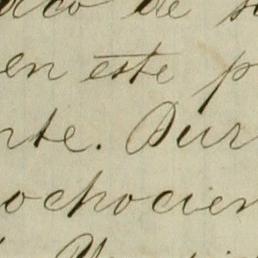 de
en este p
nte. Dur
ochocien